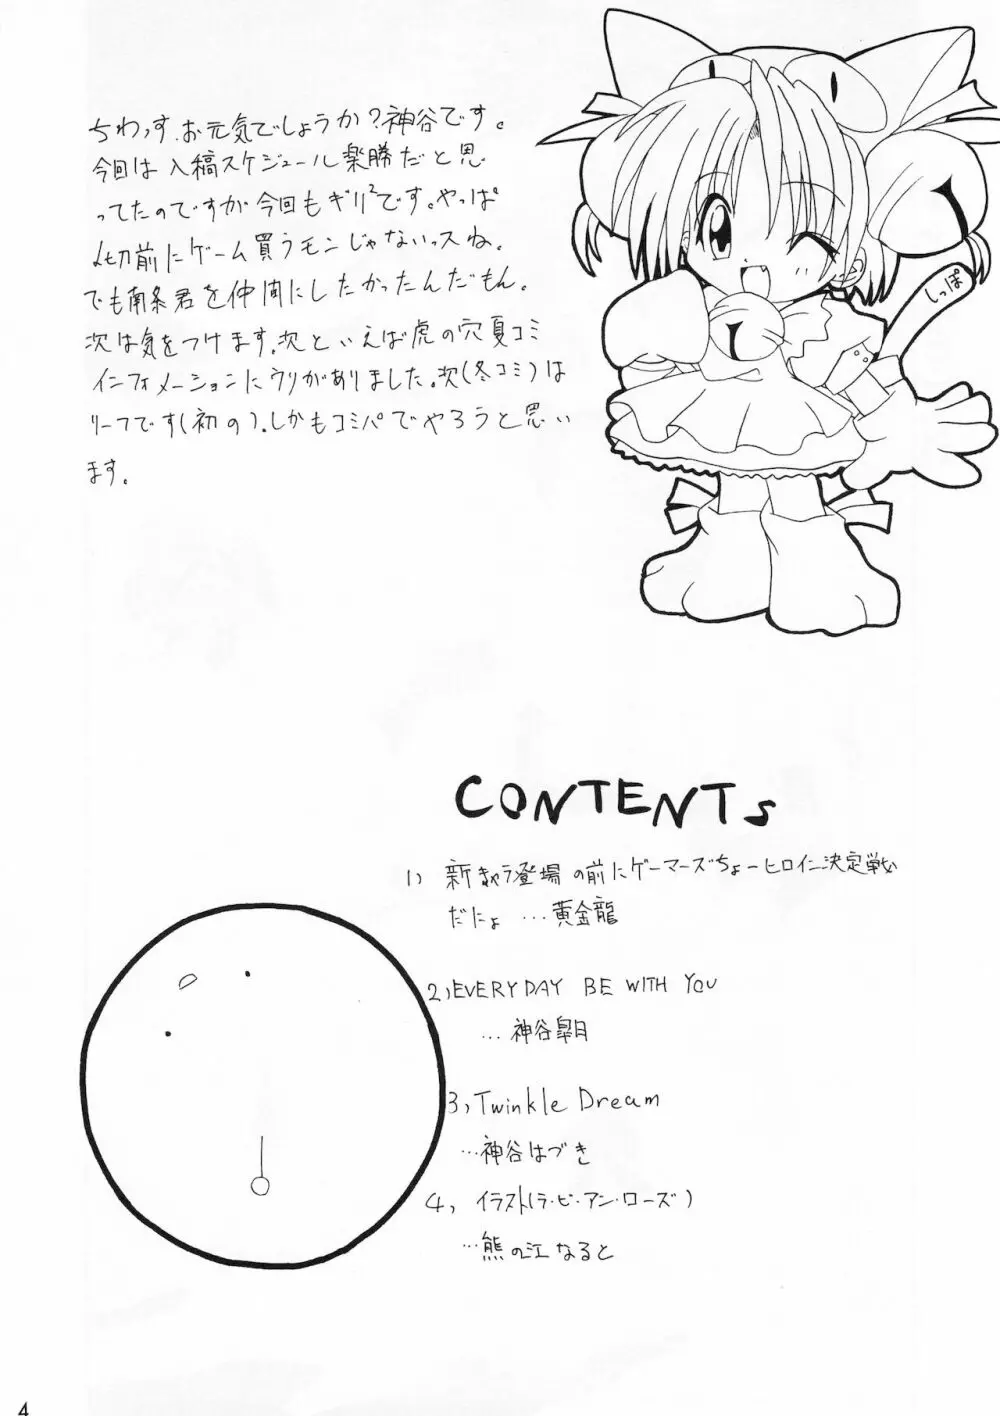 ちわっす.お元気でしょうか?神谷です。
今回は入稿スケジュール楽勝だと思
ってたのですが今回もギリ²です。やっぱ
〆切前にゲーム買うモンじゃないっスね。
でも南条君を仲間にしたかったんだもん。
次は気をつけます。次といえば虎の穴夏コミ
インフォメーションにウリがありました。次(冬コミ)は
リーフです(初の).しかもコミパでやろうと思い
ます。
しっぽ
CONTENTS
1) 新きゃラ登場の前にゲーマーズちょーヒロイン決定戦
だにょ …黄金龍
2) EVERYDAY BE WITH YOU
…神谷皐月
3, Twinkle Dream
…神谷はづき
4, イラスト(ラ・ビ・アン・ローズ)
…熊の江なると
4